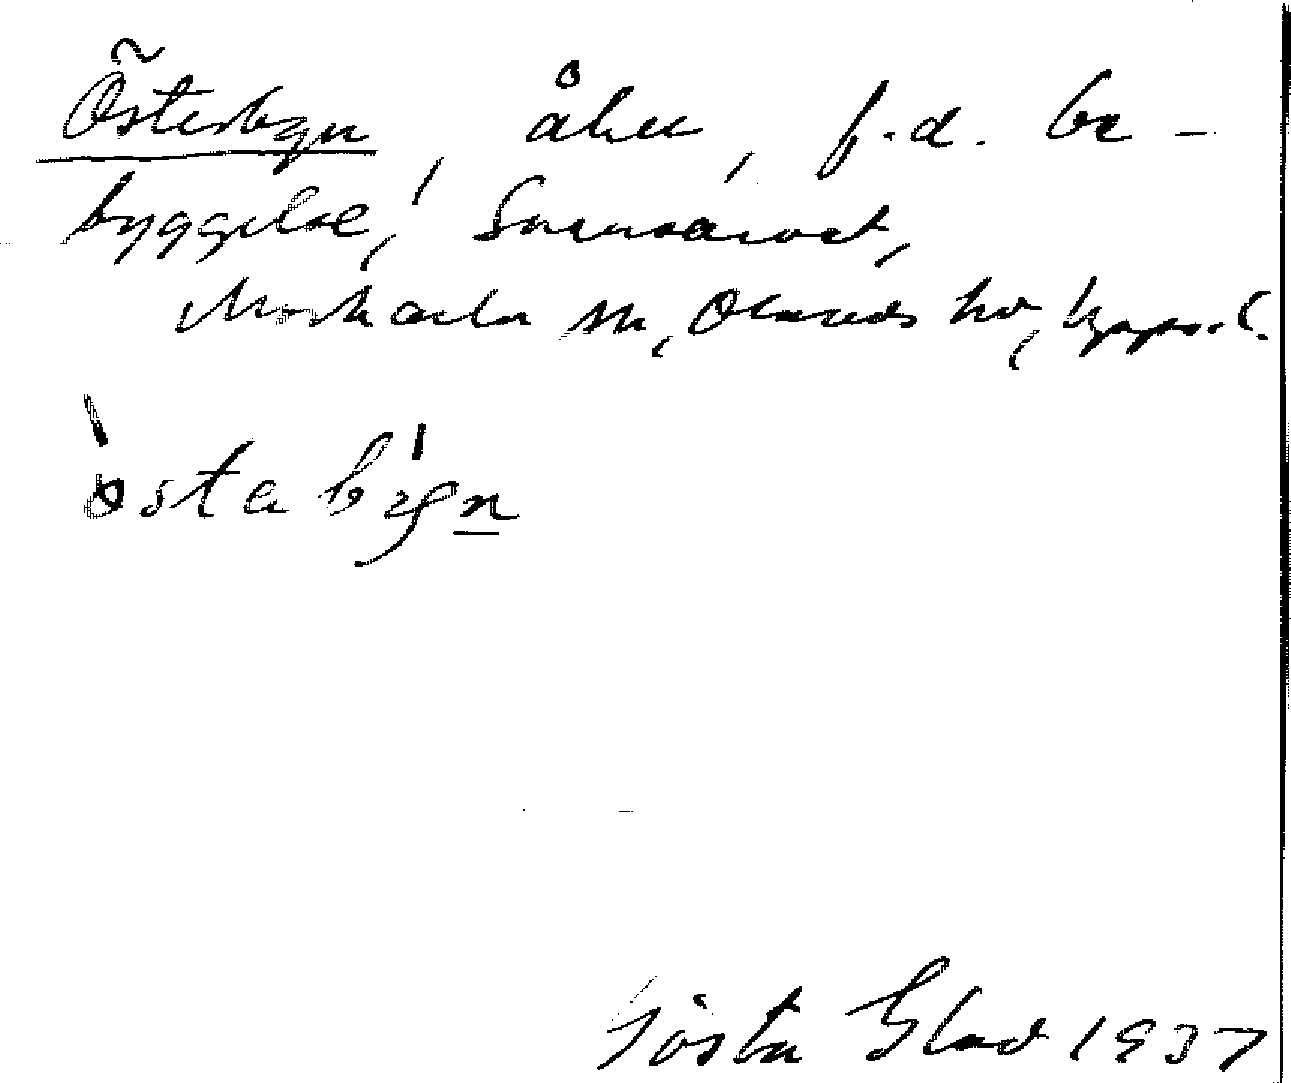 Österbyn, åker, f.d. be-
byggelse, Sörsåret,
Morkarla sn, Olands hd, Upps. l.
östa býgn
Gösta Glad 1937